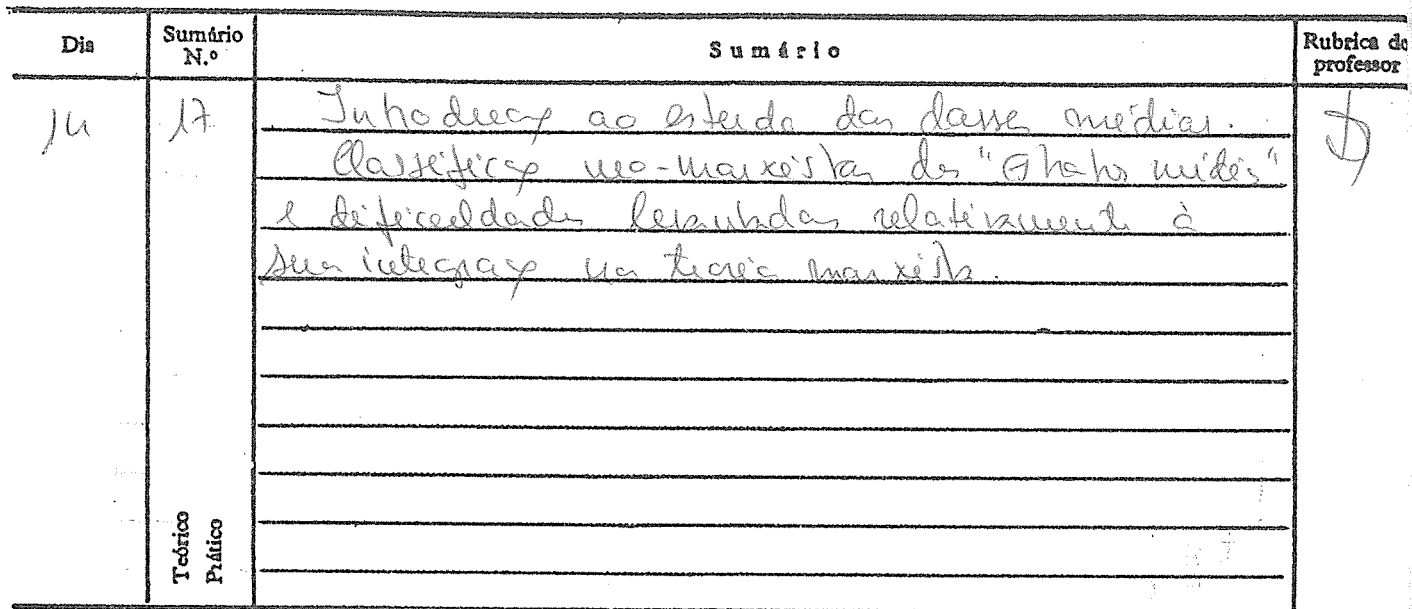 Dia
Sumário N.º
Sumário
Rubrica do professor
14
17
Introdução ao estudo das classes médias.
Classificação neo-marxistas dos "Estratos médios"
e dificuldades levantadas relativamente à
sua integração na teoria marxista.
Teórico
Prático